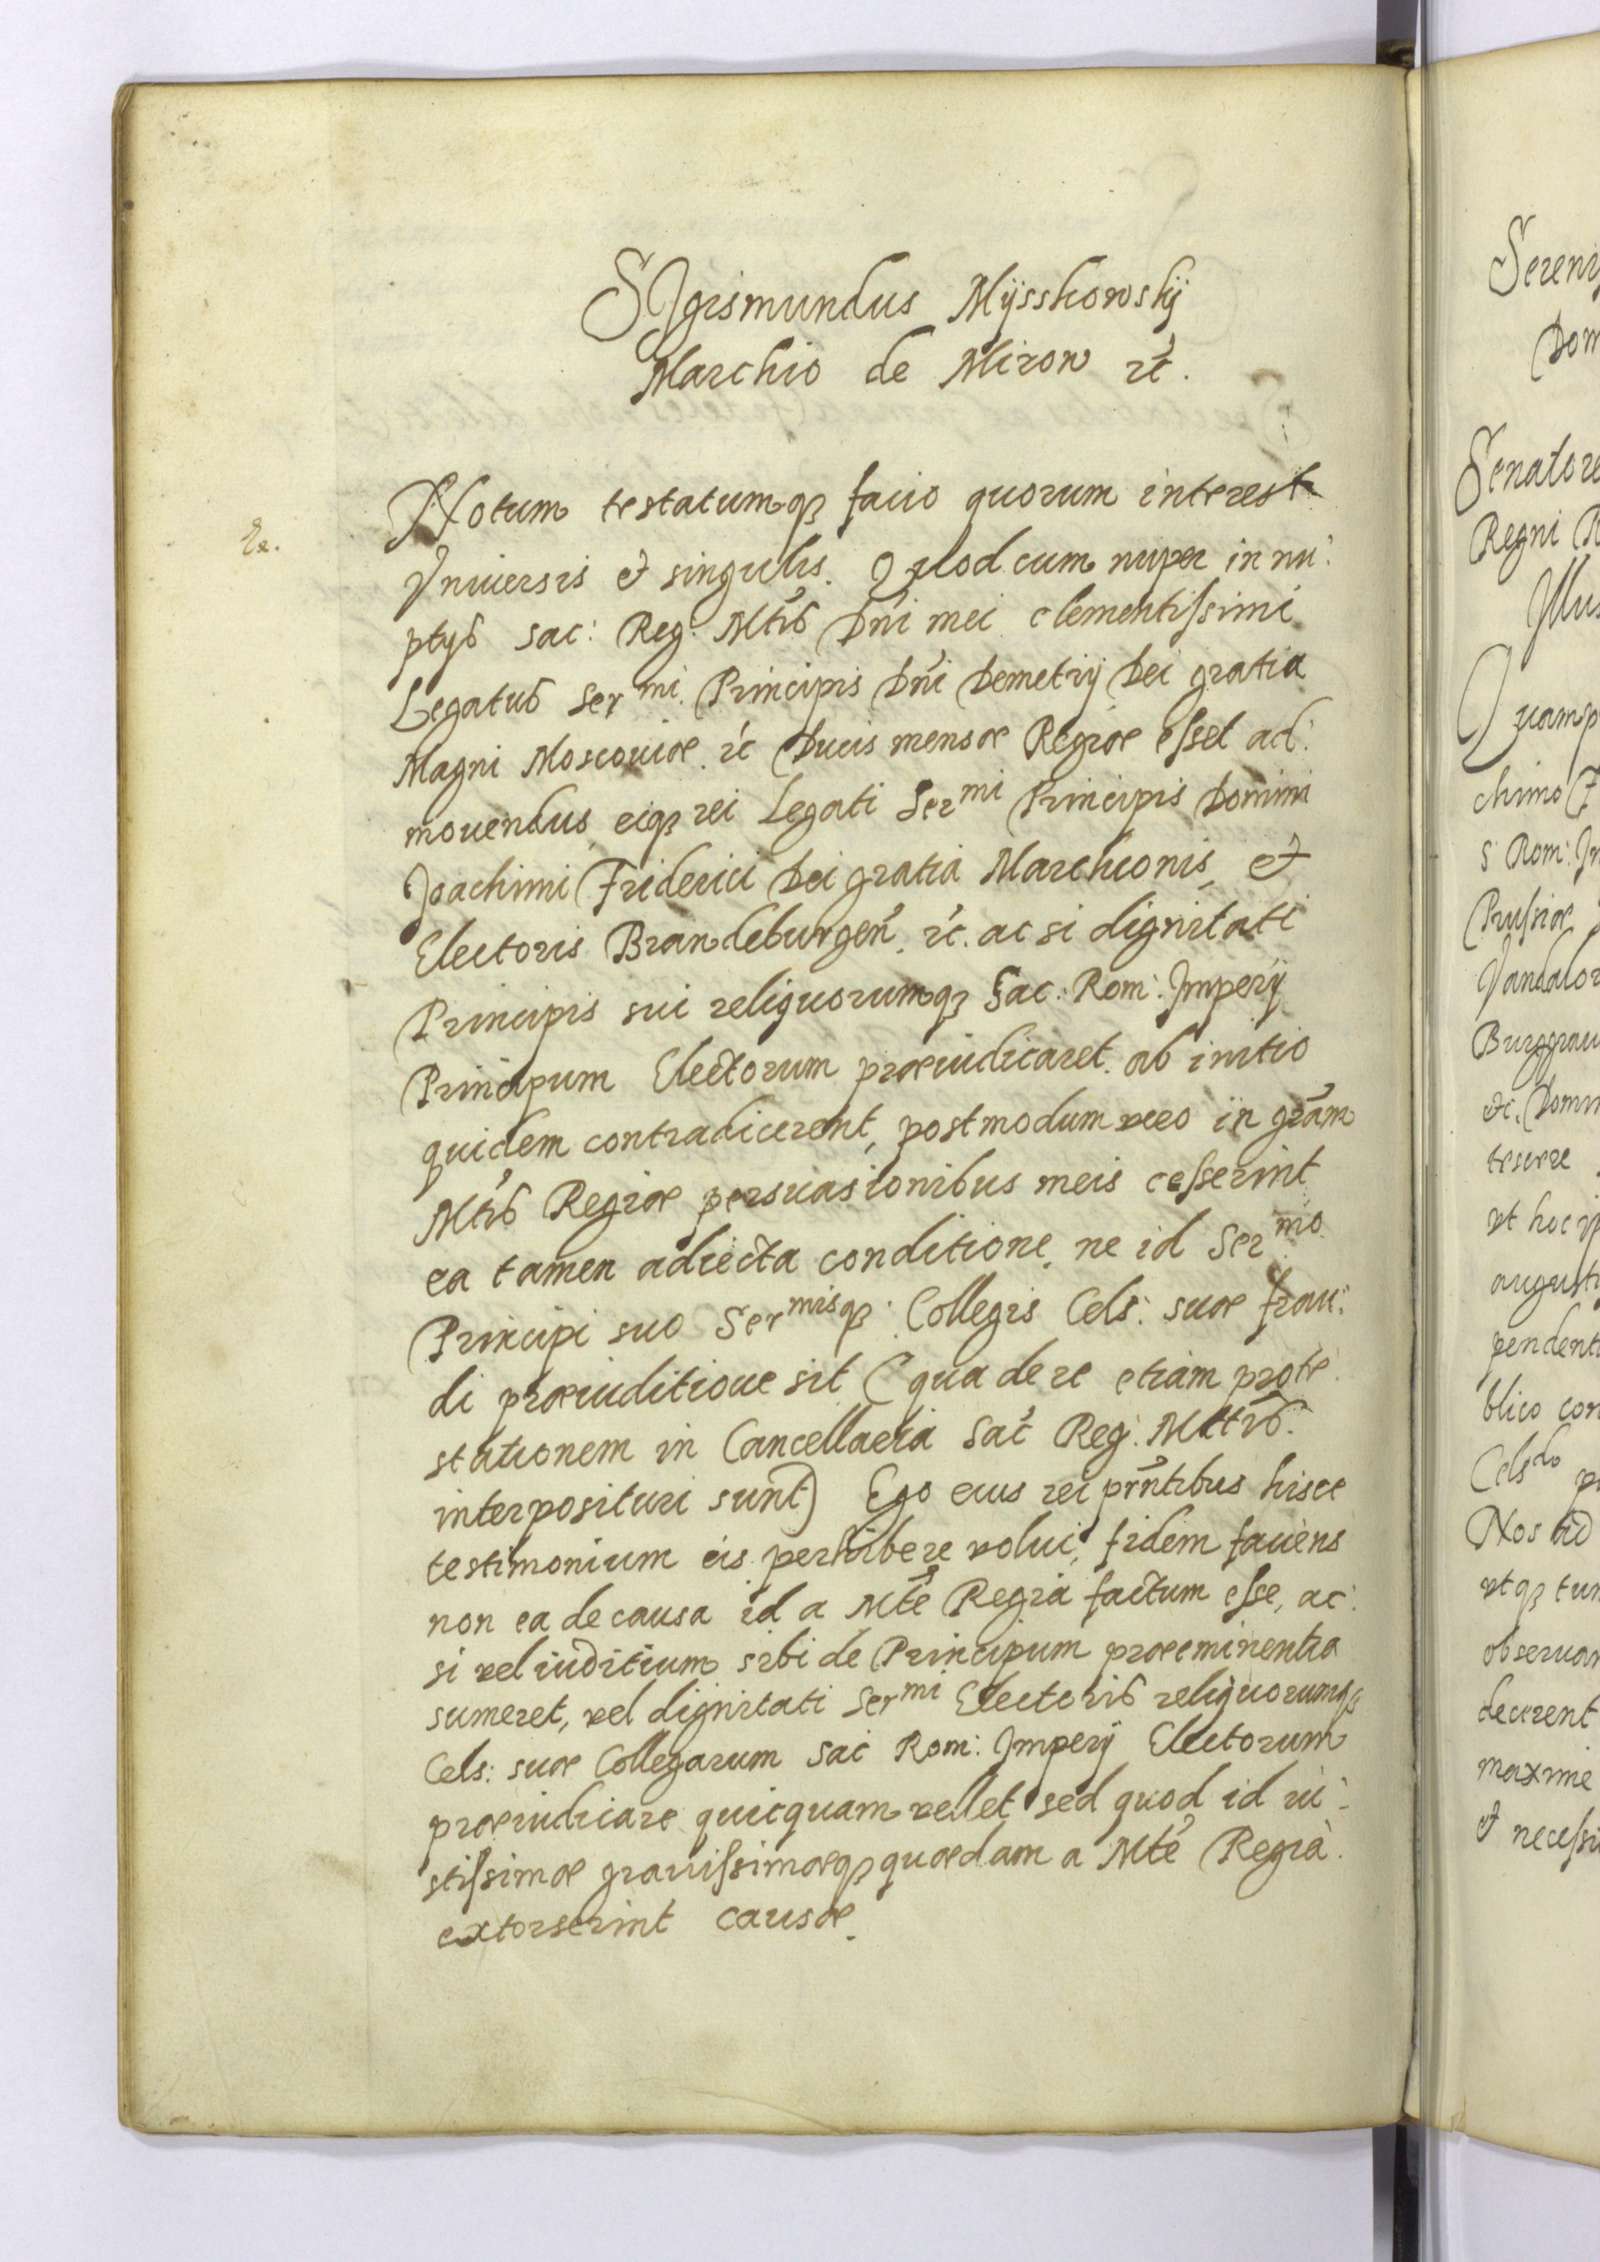 SIgismundus Mÿsskowskÿ
Marchio de Mirow ꝛc̓.
Notum testatumqꝫ facio quorum interest
Vniuersis et singulis. Quod cum nuper in nu:
ptÿs sac: Reg: Mtis Dni mei clementissimi
Legatus Ser^mi Principis Dni Demetrij Dei gratia
Magni Moscouiæ ꝛc Ducis mensæ Regiæ esset ad:
mouendus, eiqꝫ rei Legati Ser^mi Principis Domini
Joachimi Friderici Dei gratia Marchionis, et
Electoris Brandeburgen̓. ꝛc̓. ac si dignitati
Principis sui reliquorumqꝫ Sac: Rom: Imperij
Principum Electorum præiudicaret. ab initio
quidem contradicerent, postmodum vero in gram
Mtis Regiæ persuasionibus meis cesserint
ea tamen adiecta conditione, ne id Ser^mo
Principi suo Ser^misqꝫ Collegis Cels: suæ frau:
di præiuditioue sit (qua de re etiam prote:
stationem in Cancellaria Sac̓ Reg: Mttis.
interposituri sunt) Ego eius rei prntibus hisce
testimonium eis perhibere volui, fidem faciens
non ea de causa id a Mte Regia factum esse, ac:
si vel iuditium sibi de Principum præeminentia
sumeret, vel dignitati Ser^mi Electoris reliquorumqꝫ
Cels: suæ Collegarum Sac Rom: Imperij Electorum
præiudicare quicquam vellet sed quod id iu:
stissimæ grauissimæqꝫ quædam a Mte Regia
extorserint causæ.
Sereni
Dom
Senatore
Regni
Illus
Quamp
chimo
S Rom: Im
Prussiæ
Vandalor
Burggrau
etc. Domi
vt hoc
augusti
pendenti
blico con
Cels^do
Nos
vtqꝫ tum
obseruan
decerent
maxime
et necessi